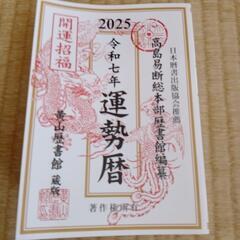 2025
開運招福
日本暦書出版協会推薦
高島易断総本部歴書館編纂
令和七年
運勢暦
黄山歴書館 蔵版
著作権所有